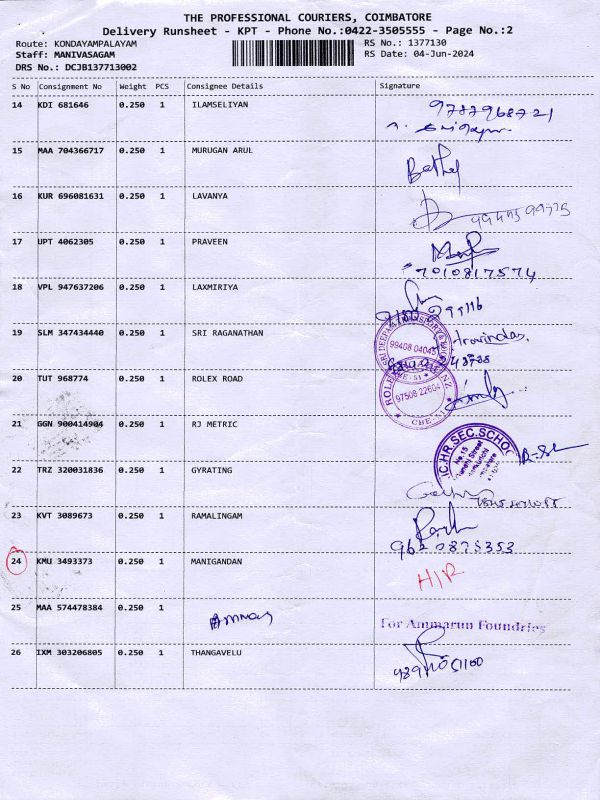 THE PROFESSIONAL COURIERS, COIMBATORE
Delivery Runsheet - KPT - Phone No.:0422-3505555 - Page No.:2
Route: KONDAYAMPALAYAM
Staff: MANIVASAGAM
DRS No.: DCJB137713002
RS No.: 1377130
RS Date: 04-Jun-2024
S No Consignment No Weight PCS Consignee Details Signature
14 KDI 681646 0.250 1 ILAMSELIYAN
15 MAA 704366717 0.250 1 MURUGAN ARUL
16 KUR 696081631 0.250 1 LAVANYA
17 UPT 4062305 0.250 1 PRAVEEN
7010817574
18 VPL 947637206 0.250 1 LAXMIRIYA
19 SLM 347434440 0.250 1 SRI RAGANATHAN
99408 04045
20 TUT 968774 0.250 1 ROLEX ROAD
97508 22604
21 GGN 900414904 0.250 1 RJ METRIC
C.HR.SEC.SCHOO
22 TRZ 320031836 0.250 1 GYRATING
23 KVT 3089673 0.250 1 RAMALINGAM
9620875353
24 KMU 3493373 0.250 1 MANIGANDAN
H/R
25 MAA 574478384 0.250 1
For Ammarun Foundries
26 IXM 303206805 0.250 1 THANGAVELU